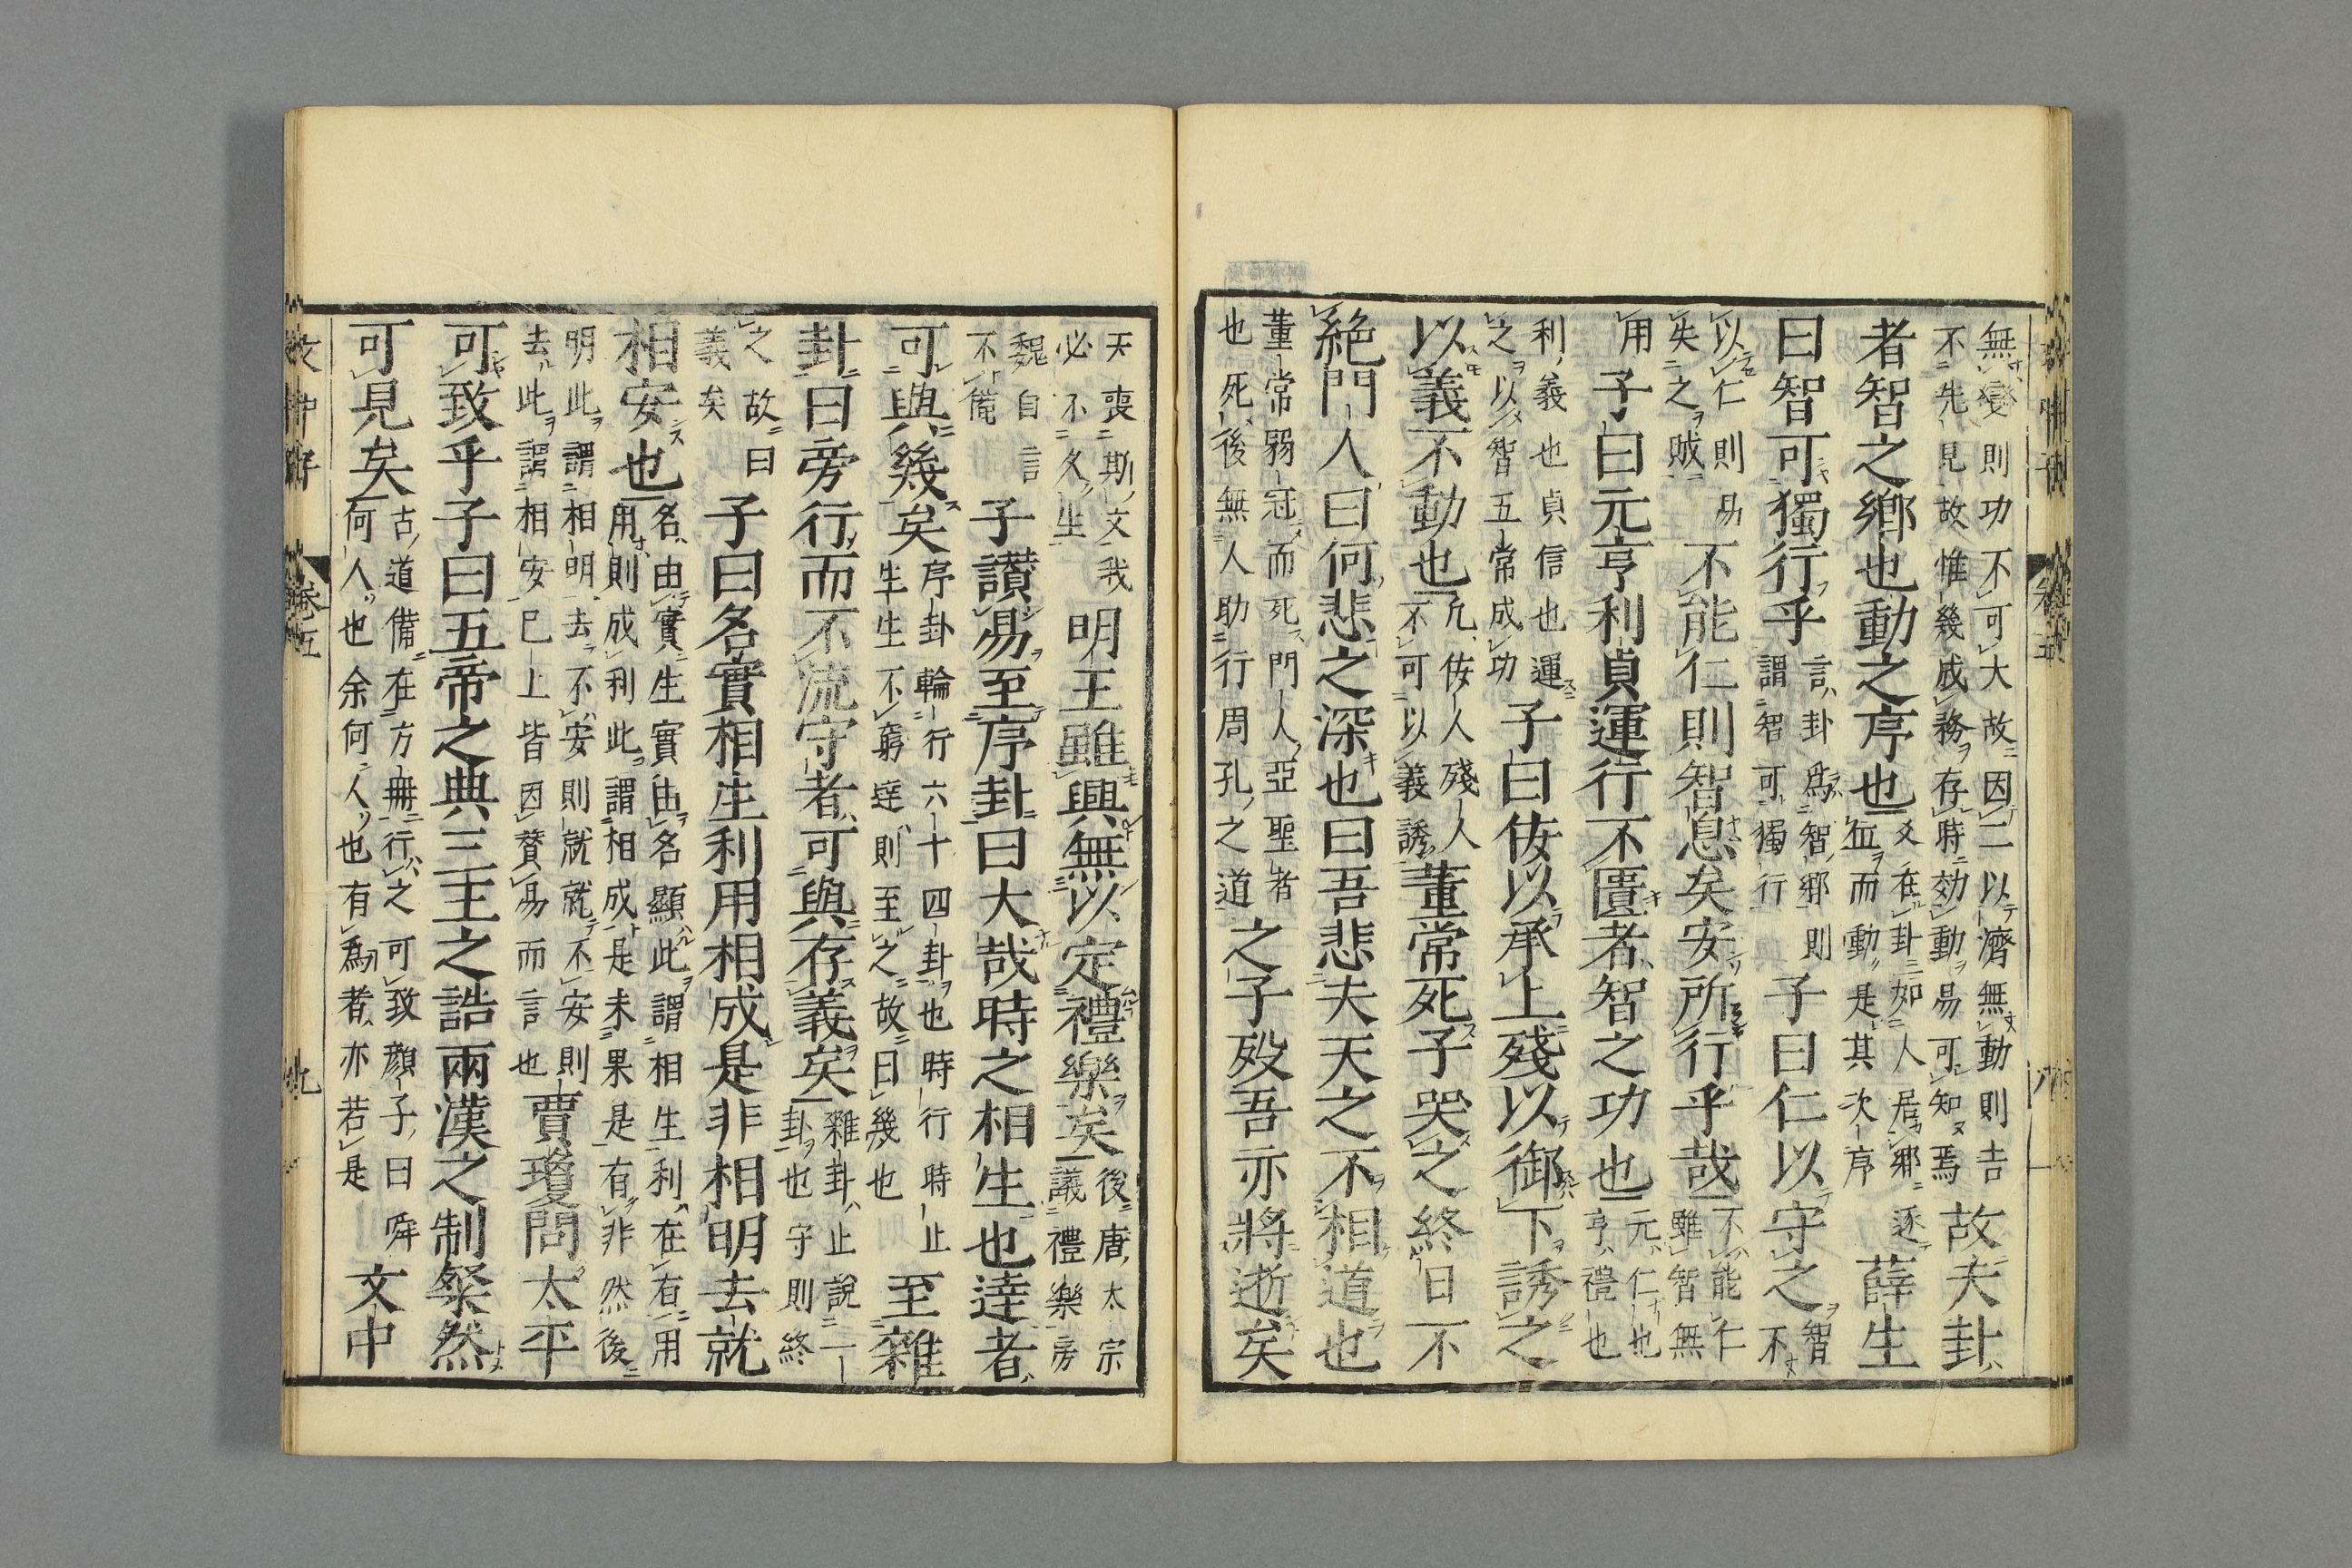 無變則功不可大故因二以濟無動則吉
不先見故惟幾成務存時効動易可知焉
故夫卦
者智之鄉也動之序也
爻在卦如人居鄉逐
位而動是其次序
薛生
曰智可獨行乎
言卦爲智鄉則
謂智可獨行
子曰仁以守之
智
不
以仁則易
失之賊
不能仁則智息矣安所行乎哉
不能仁
雖智無
用
子曰元亨利貞運行不匱者智之功也
元仁也
亨禮也
利義也貞信也運
之以智五常成功
子曰佞以承上殘以御下誘之
以義不動也
凡佞人殘人
不可以義誘
董常死子哭之終日不
絶門人曰何悲之深也曰吾悲夫天之不相道也
董常弱冠而死門人亞聖者
也死後無人助行周孔之道
之子歿吾亦將逝矣
明王雖興無以定禮樂矣
天喪斯文我
必不久生
後唐太宗
議禮樂房
魏自言
不備
子讃易至序卦曰大哉時之相生也達者
可與幾矣
序卦輪行六十四卦也時行時止
生生不窮達則至之故曰幾也
至雜
卦曰旁行而不流守者可與存義矣
雜卦止說一
卦也守則終
之故曰
義矣
子曰名實相生利用相成是非相明去就
相安也
名由實生實由名顯此謂相生利在有用
用則成利此謂相成是未果是有非然後
明此謂相明去不安則就就不安則
去此謂相安已上皆因賛易而言也
賈瓊問太平
可致乎子曰五帝之典三王之誥兩漢之制粲然
可見矣
古道備在方冊行之可致顔子曰舜
何人也余何人也有爲者亦若是
文中
文中子
卷五
九